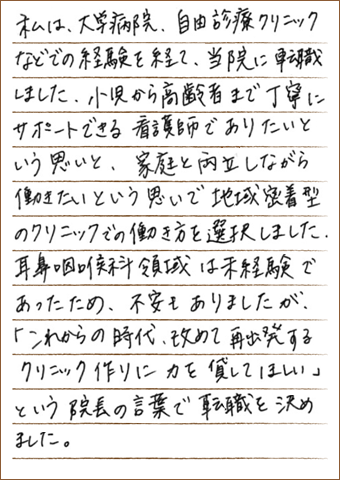 私は、大学病院、自由診療クリニック
などでの経験を経て、当院に転職
しました。小児から高齢者まで丁寧に
サポートできる看護師でありたいと
いう思いと、家庭と両立しながら
働きたいという思いで地域密着型
のクリニックでの働き方を選択しました。
耳鼻咽喉科領域は未経験で
あったため、不安もありましたが、
「これからの時代、改めて再出発する
クリニック作りに力を貸してほしい」
という院長の言葉で転職を決め
ました。